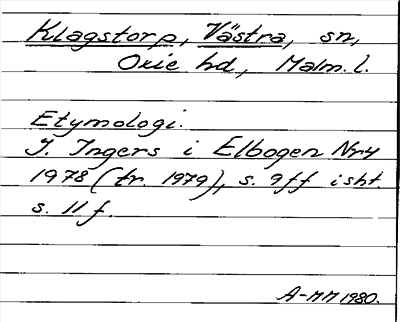 Klagstorp, Västra, sn,
Oxie hd, Malm. l.
Etymologi.
I. Ingers i Elbogen Nr 4
1978 (tr. 1979), s. 9 ff isht.
s. 11 f.
A-MM 1980.